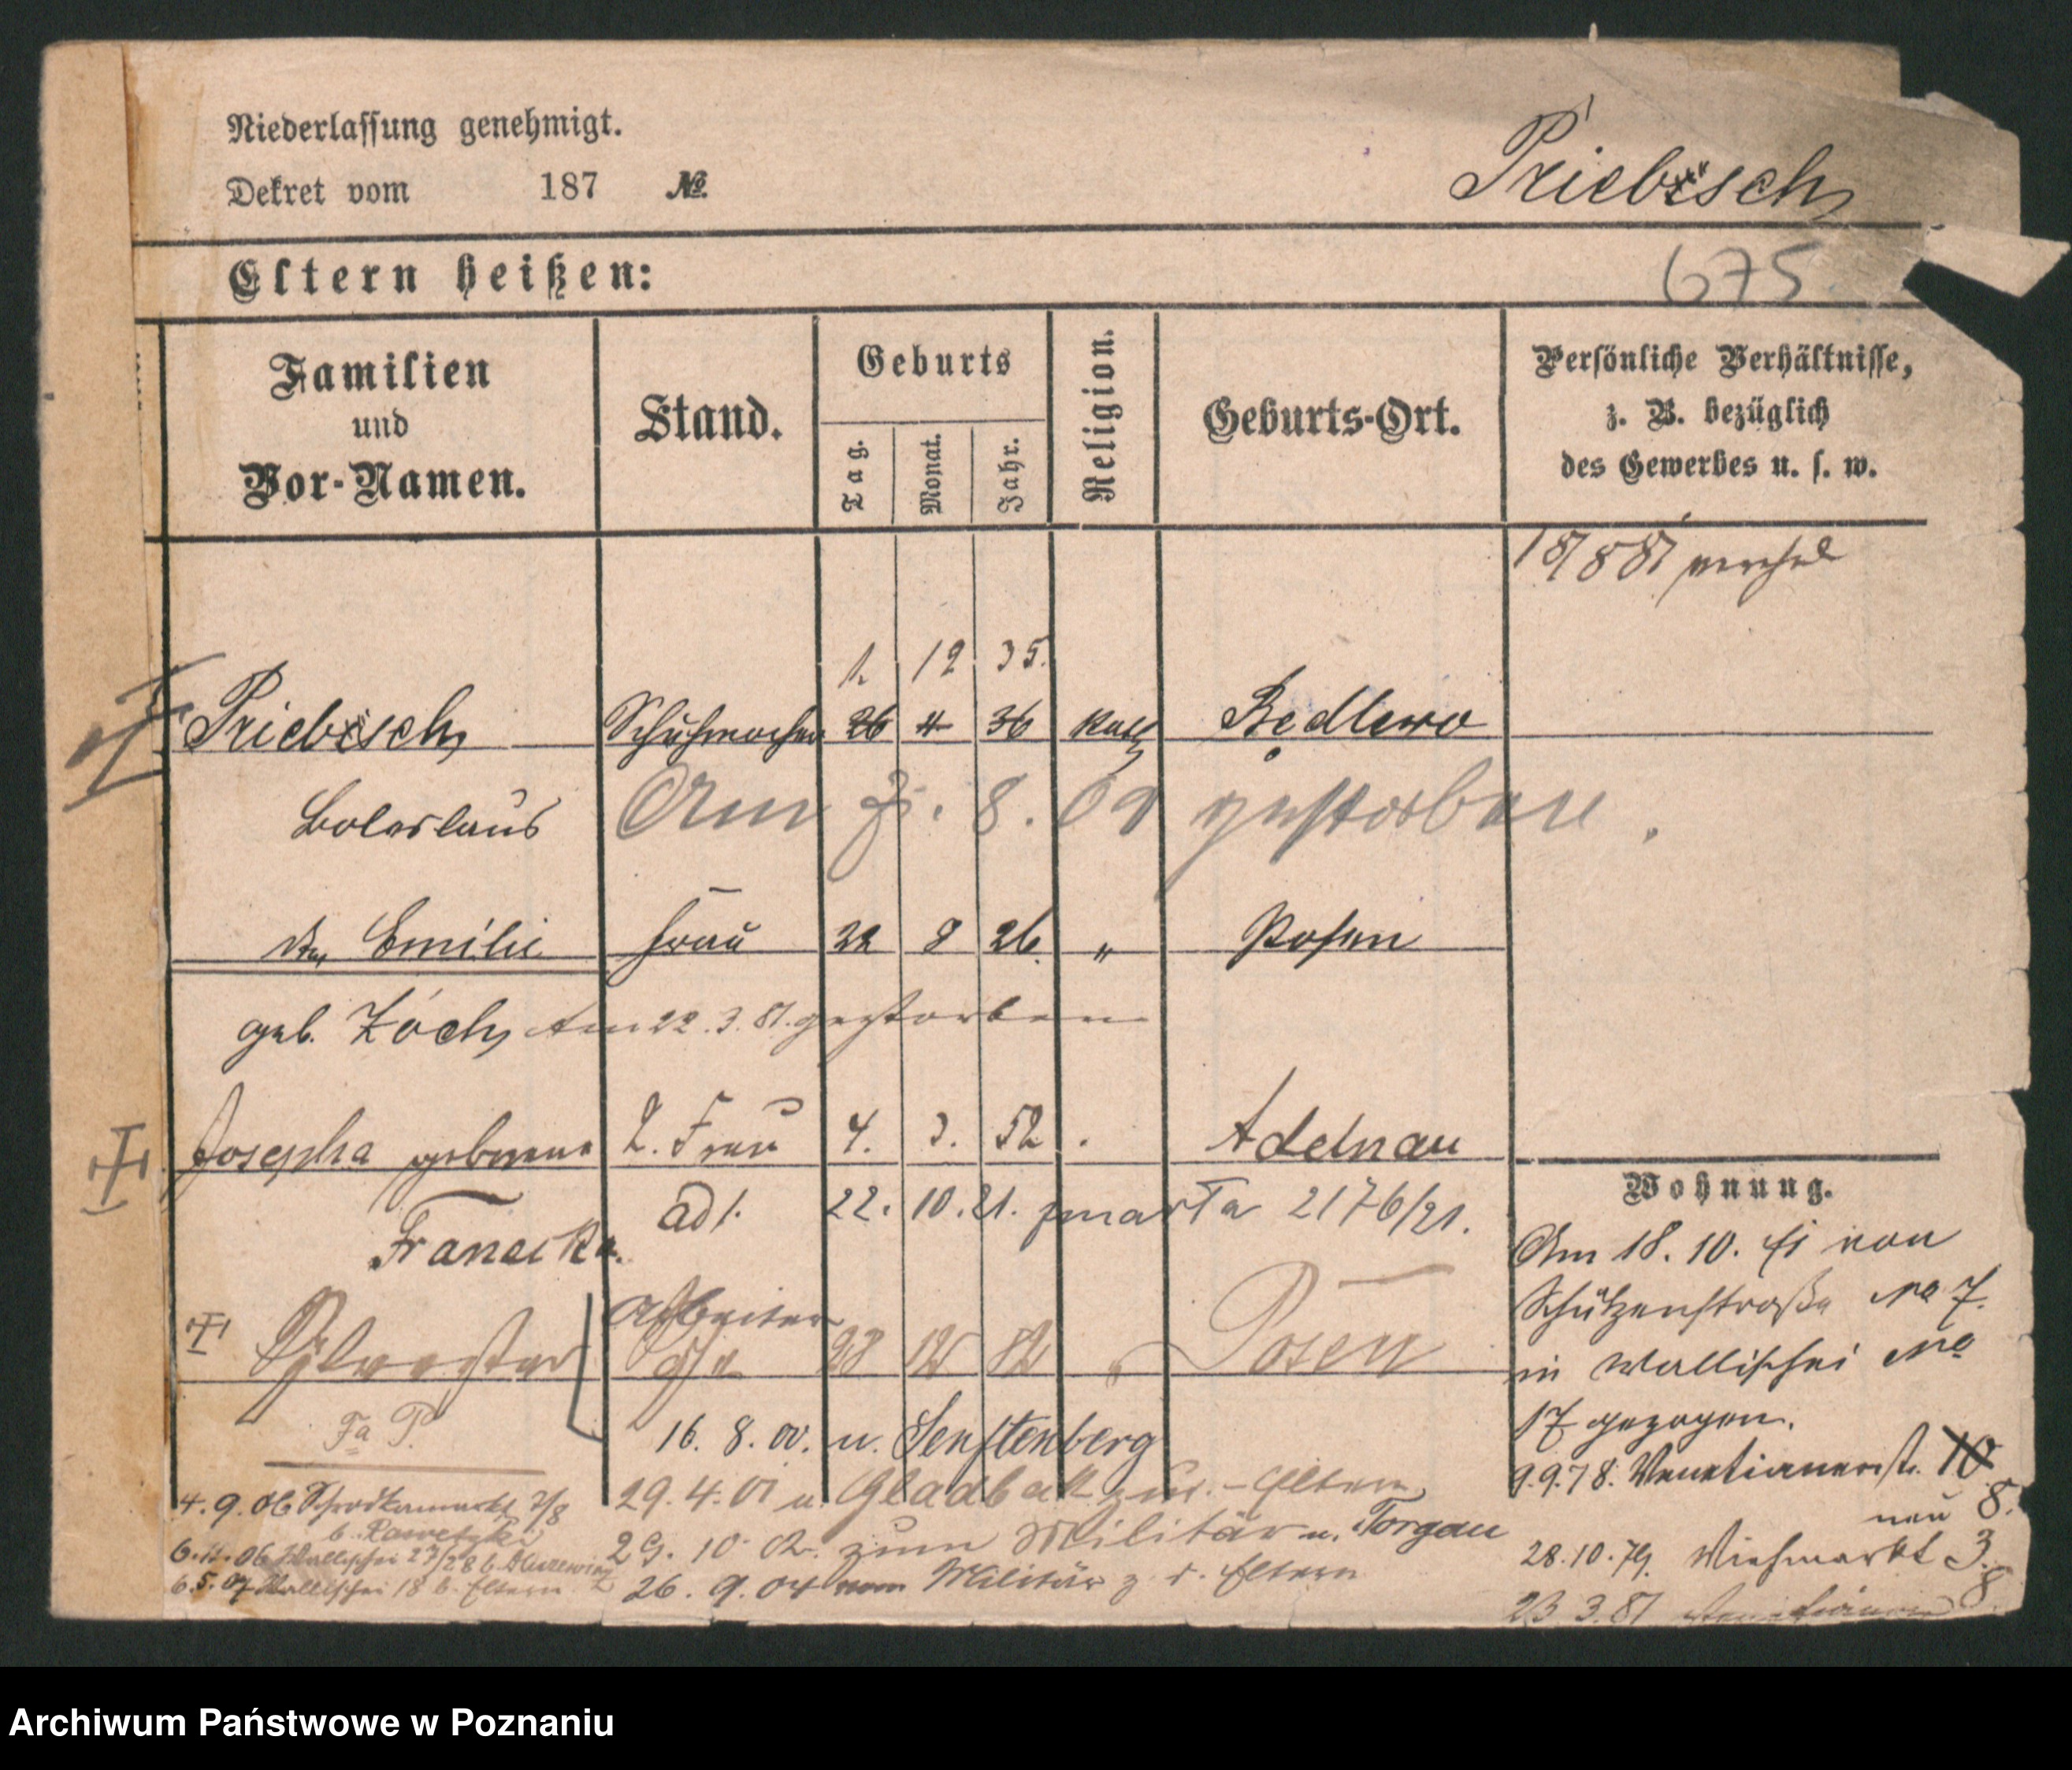 Niederlassung genehmigt.
Dekret vom 187 №
Priebsch
675
Eltern heißen:
Familien und Vor-Namen.
Stand.
Geburts
Tag.
Monat.
Jahr.
Religion.
Geburts-Ort.
Persönliche Verhältnisse, z. B. bezüglich des Gewerbes u. s. w.
18/8 81
1. 12 35.
Priebsch Schuhmacher 26 4 36 kath Bedlewo
Boleslaus Am 8. 09 gestorben.
Emilie Frau 22 8 26. " Posen
geb. Zóch Am 22.3.81. gestorben
Josepha geborene 2. Frau 4. 3. 52 Adelnau
ad 1. 22. 10. 21. zmarła 2176/21.
Franecka.
Arbeiter
Sylvester 28 12 82 Posen
Fa P.
16. 8. 00. n. Senftenberg
29. 4. 01 u. Gladbak zur. - Eltern
29. 10. 02. zum Militär n. Torgau
26. 9. 04 vom Militär z. d. Eltern
4. 9. 06 Schrodkamarkt 7/8
b.
6. 11. 06 Wallischei 27/28 b.
6 5. 07 Wallischei 18 b. Eltern
Wohnung.
Am 18. 10. von
Schützenstraße No 7.
in Wallischei No
17 gezogen.
9.9.78. Venetianerst. 10
neu 8.
28.10.79. Viehmarkt 3.
23 3.81 Venetianer 8.
Archiwum Państwowe w Poznaniu